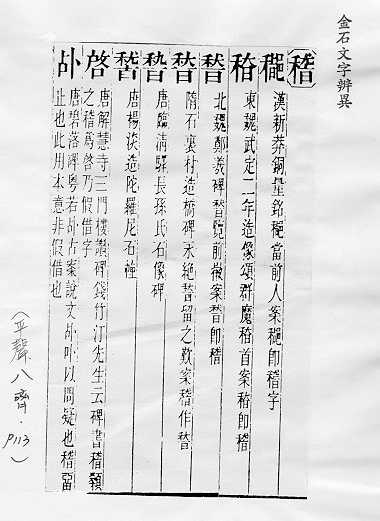 金石文字辨異
稽
䅲 漢新莽銅量銘䅲當前人案䅲卽稽字
䅥 東魏武定二年造像頌群魔䅥首案䅥卽稽
暜 北魏鄭羲碑暜覽前徽案暜卽稽
隋石裏村造橋碑永絶 留之歎案稽作
唐臨清驛長孫氏石像碑
唐楊淡造陀羅尼石幢
啓 唐解慧寺三門樓讚碑錢竹汀先生云碑書稽顙
之稽爲啓乃假借字
卟 唐碧落碑粤若卟古案說文卟卟以問疑也稽畱
止也此用本意非假借也
(平聲八齊.P113)